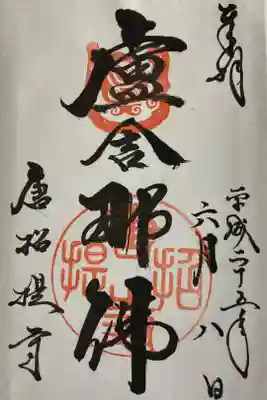 奉拝
平成二十五年
六月八日
盧舎那佛
唐招提寺
唐招提寺